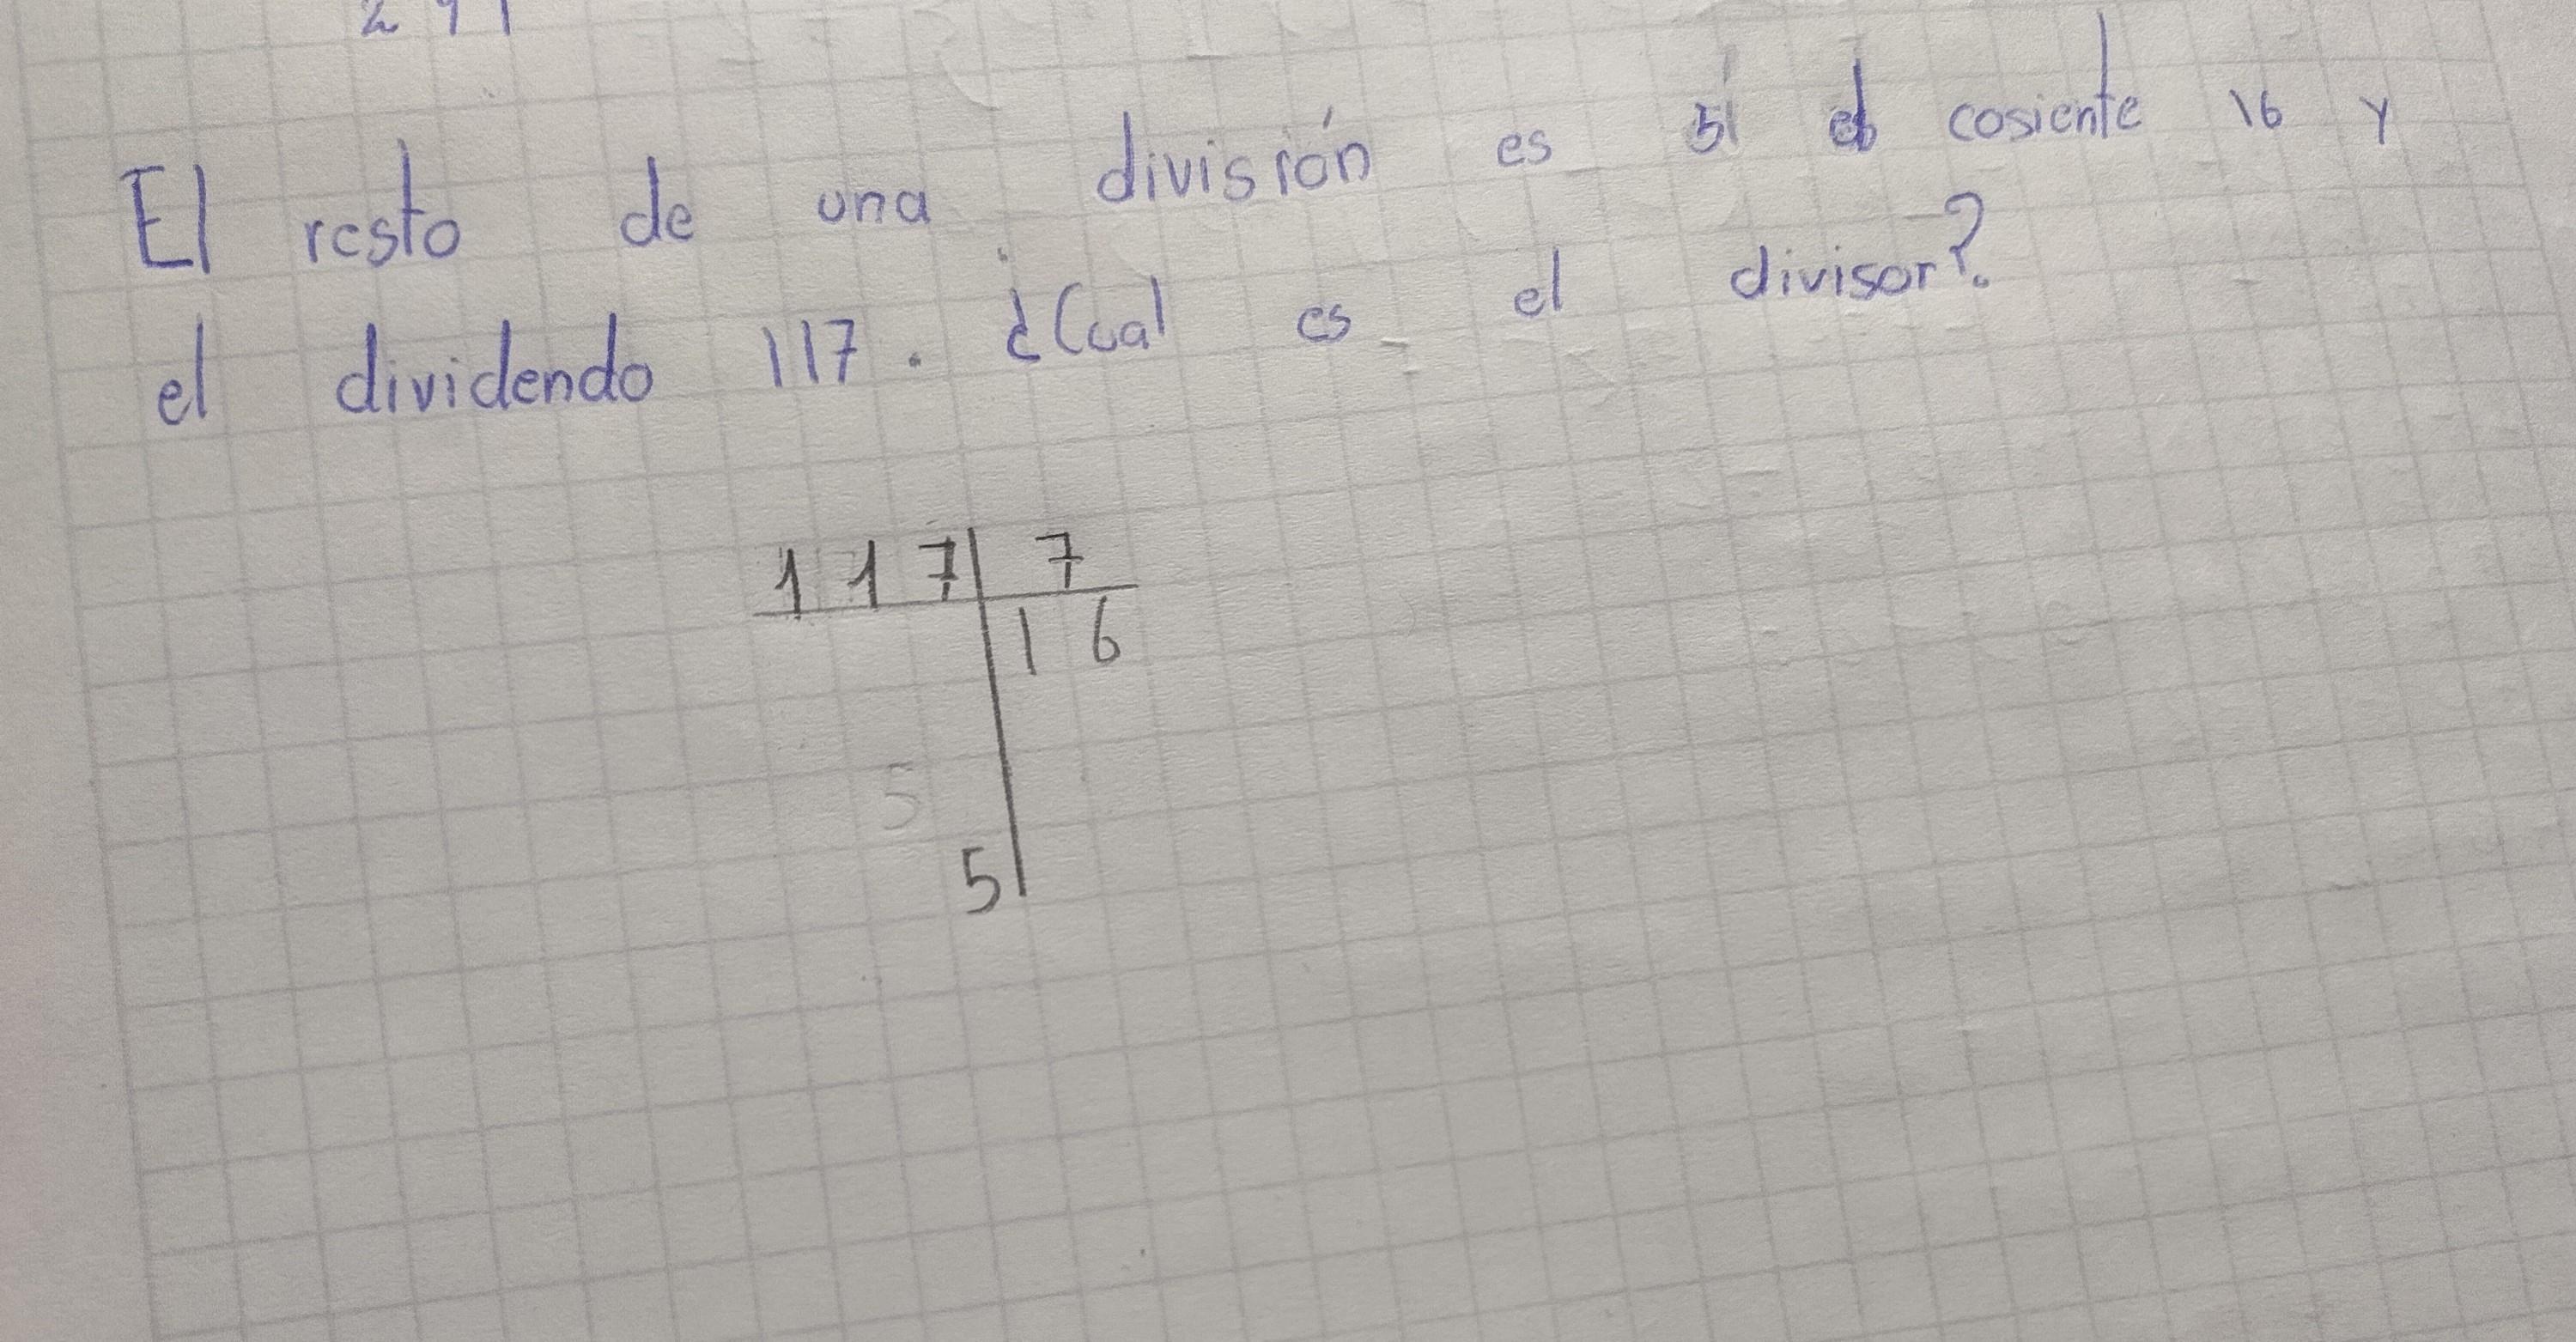 El resto de una división es 5 el cosiente 16 y
el dividendo 117. ¿Cual es el divisor?
117 7
16
5
5